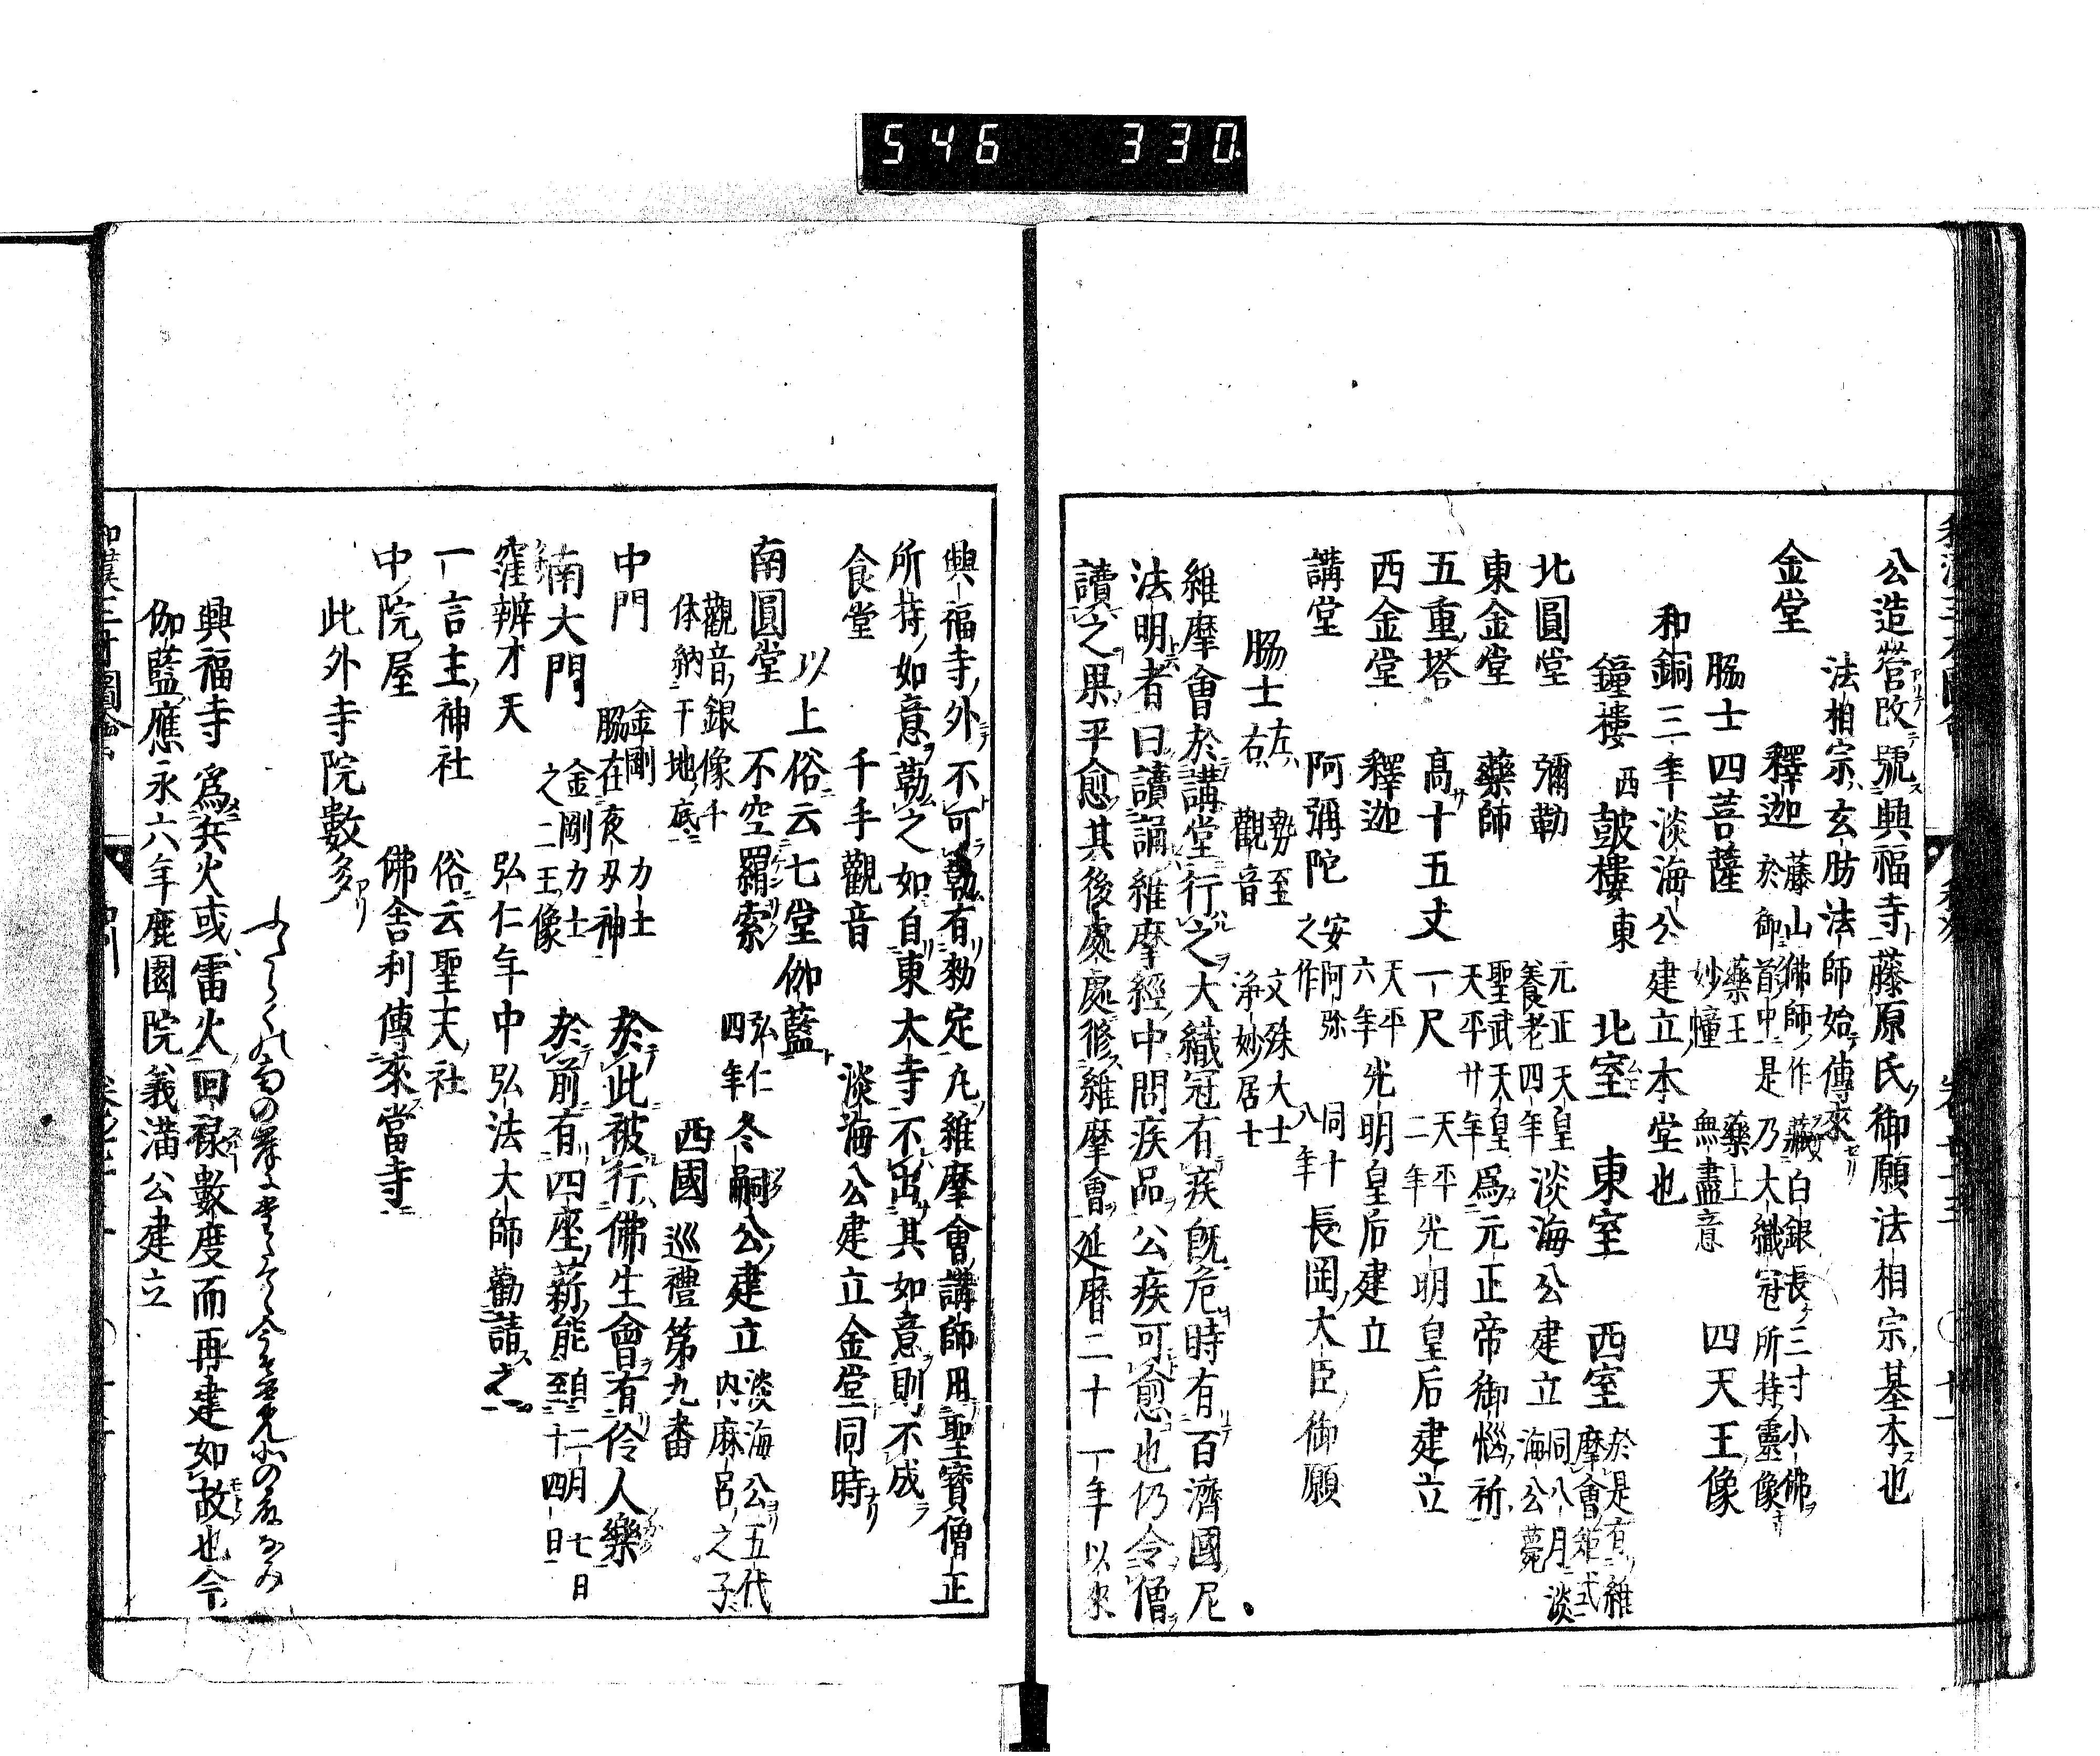 546 330
公造營改號興福寺藤原氏御願法相宗基本也
法相宗玄昉法師始傳來
金堂 釋迦 藤山佛師作藏白銀長三寸小佛
於御首中是乃大織冠所持靈像
脇士四菩薩 藥王 藥上
妙幢 無盡意 四天王像
和銅三年淡海公建立本堂也
鐘樓西 皷樓東 北室 東室 西室 於是有維
摩會筭式
北圓堂 彌勒 元正天皇
養老四年 淡海公建立 同八月淡
海公薨
東金堂 藥師 聖武天皇
天平廿年 爲元正帝御惱祈
五重塔 高十五丈一尺 天平
二年 光明皇后建立
西金堂 釋迦 天平
六年 光明皇后建立
講堂 阿彌陀 安阿弥
之作 同十
八年 長岡大臣御願
脇士 左 勢至
右 觀音 文殊大士
淨妙居士
維摩會於講堂行之大織冠有疾既危時有百濟國尼
法明者曰讀誦維摩經中問疾品公疾可愈也仍令僧
讀之果平愈其後處處修維摩會延曆二十一年以來
興福寺外不可勤有勅定凡維摩會講師用聖寳僧正
所持如意勤之如自東大寺不出其如意則不成
食堂 千手觀音 淡海公建立金堂同時
以上俗云七堂伽藍
南圓堂 不空羂索 弘仁
四年 冬嗣公建立 淡海公五代
内麻呂之子
觀音銀像千
体納干地底 西國巡禮第九番
中門 金剛力士
脇在夜叉神 於此被行佛生會有伶人樂
南大門 金剛力士
之二王像 於前有四座薪能 自二月七日
至十四日
窪辨才天 弘仁年中弘法大師勸請之
一言主神社 俗云聖大人社
中院屋 佛舍利傳來當寺
此外寺院數多
興福寺爲兵火或雷火回祿數度而再建如故也今
伽藍應永六年鹿園院義滿公建立